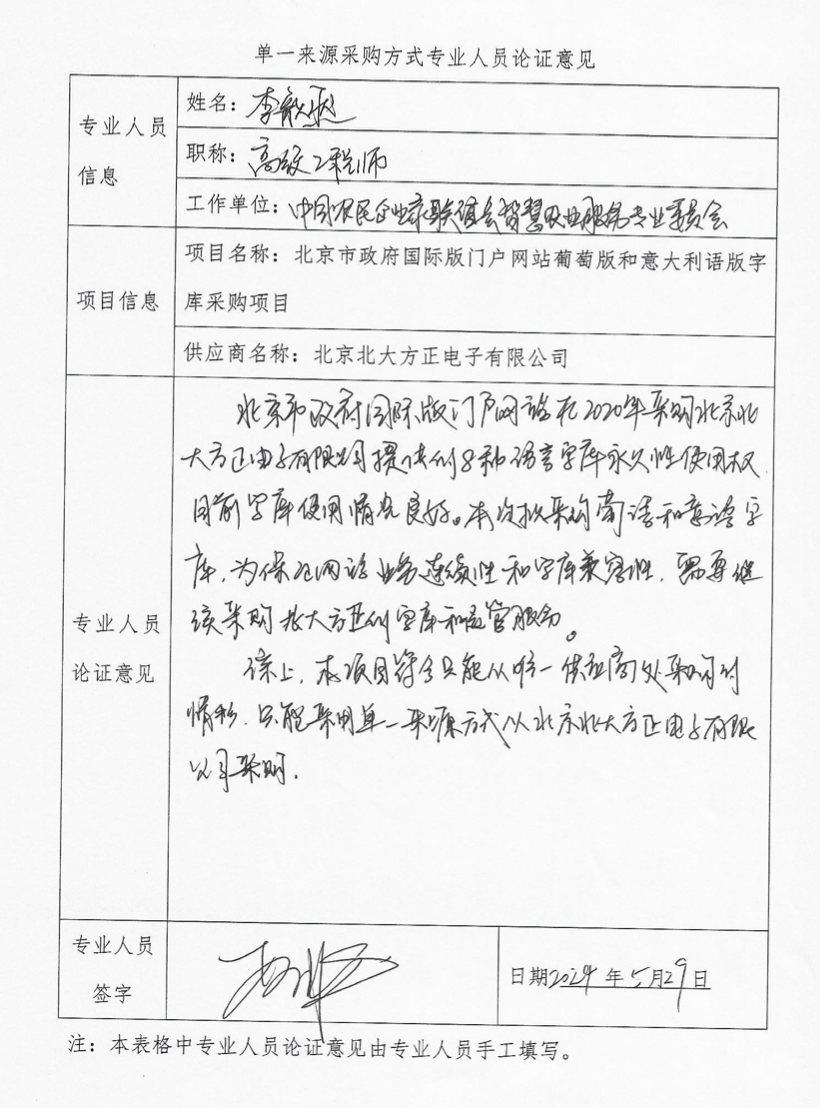 单一来源采购方式专业人员论证意见
专业人员
信息
姓名：李
职称：高级工程师
工作单位：中国农民企业家联谊会智慧农业服务专业委员会
项目信息
项目名称：北京市政府国际版门户网站葡萄版和意大利语版字
库采购项目
供应商名称：北京北大方正电子有限公司
专业人员
论证意见
北京市政府国际版门户网站在2020年采购北京北
大方正电子有限公司提供的8种语言字库永久性使用权
目前字库使用情况良好。本次拟采购葡语和意语字
库，为保证网站业务连续性和字库兼容性，需要继
续采购北大方正的字库和配套服务。
综上，本项目符合只能从唯一供应商处采购的
情形，只能采用单一来源方式从北京北大方正电子有限
公司采购.
专业人员
签字
日期2024年5月29日
注：本表格中专业人员论证意见由专业人员手工填写。